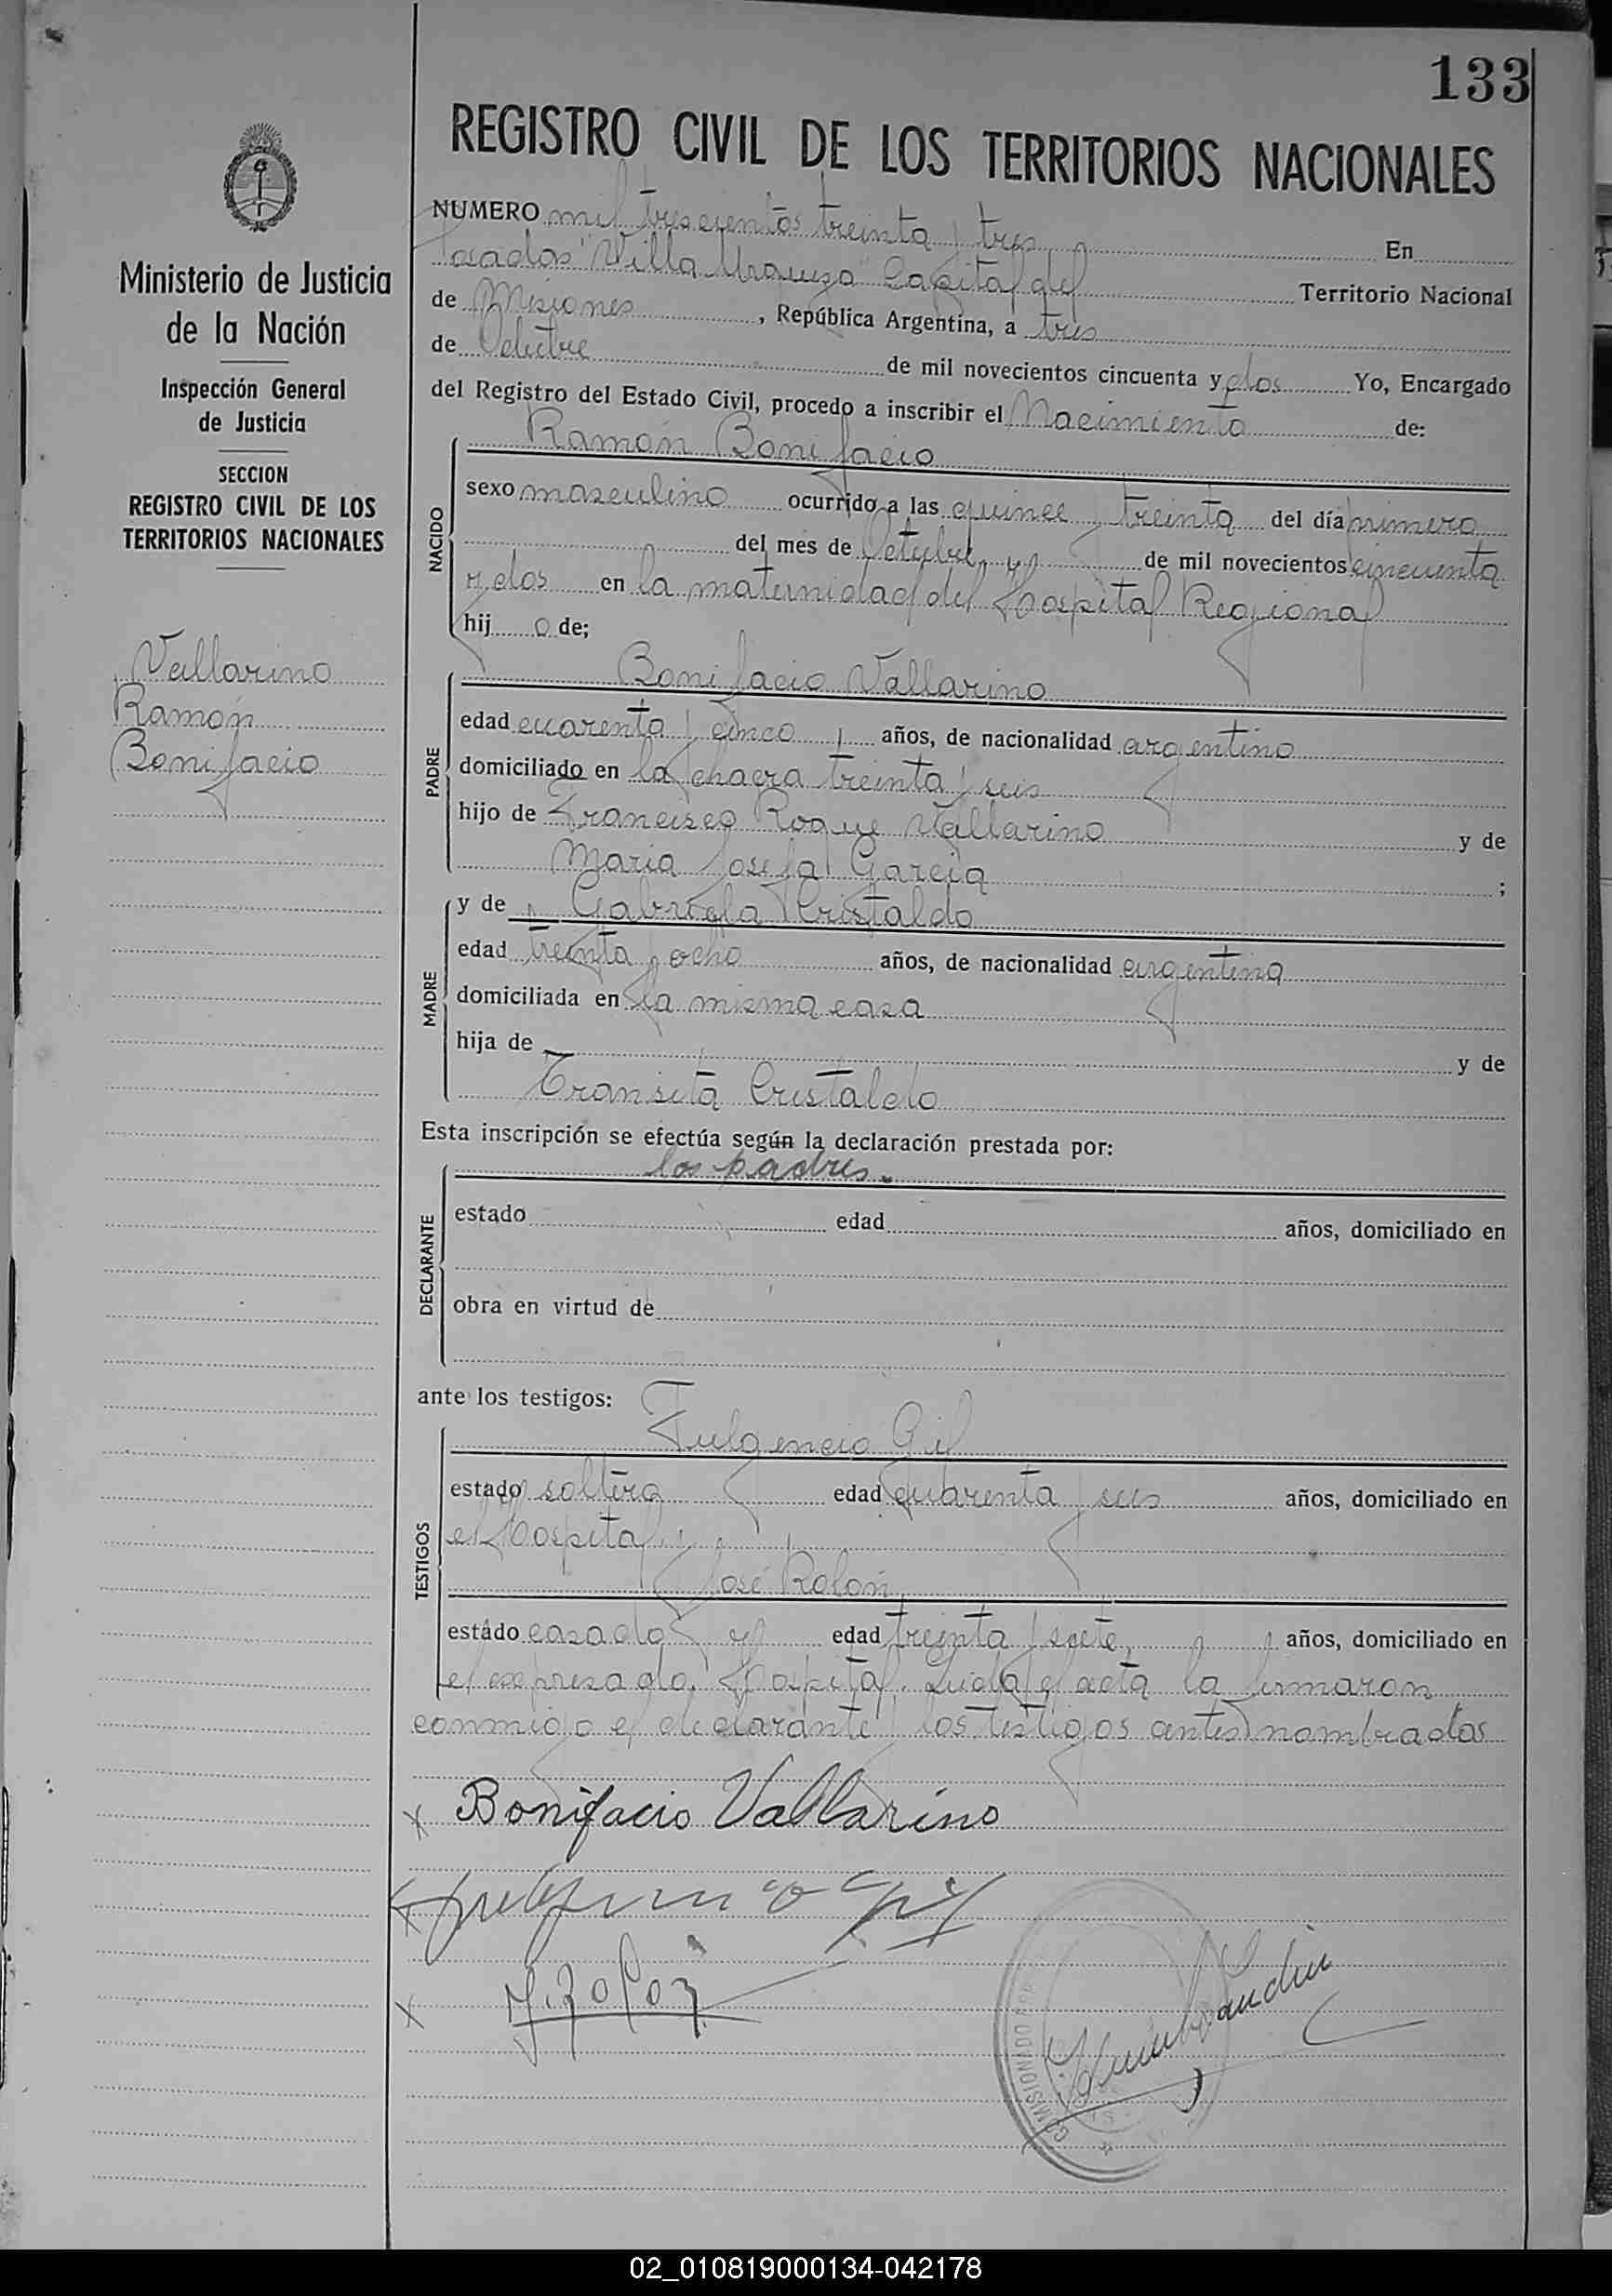 133
REGISTRO CIVIL DE LOS TERRITORIOS NACIONALES
Ministerio de Justicia
de la Nación
Inspección General
de Justicia
SECCION
REGISTRO CIVIL DE LOS
TERRITORIOS NACIONALES
Vallarino
Ramón
Bonifacio
NUMERO mil trescientos treinta y tres En
Posadas "Villa Urquiza" Capital del Territorio Nacional
de Misiones, República Argentina, a tres
de Octubre de mil novecientos cincuenta y dos Yo, Encargado
del Registro del Estado Civil, procedo a inscribir el Nacimiento de:
NACIDO
Ramón Bonifacio
sexo masculino ocurrido a las quince y treinta del día primero
del mes de Octubre de mil novecientos cincuenta
y dos en la maternidad del Hospital Regional
hij o de;
PADRE
Bonifacio Vallarino
edad cuarenta y cinco años, de nacionalidad argentino
domiciliado en la chacra treinta y seis
hijo de Francisco Roque Vallarino y de
Maria Josefa Garcia ;
MADRE
y de Gabriela Cristaldo
edad treinta y ocho años, de nacionalidad argentina
domiciliada en la misma casa
hija de y de
Transita Cristaldo
Esta inscripción se efectúa según la declaración prestada por:
los padres.
DECLARANTE
estado edad años, domiciliado en
obra en virtud de
ante los testigos:
TESTIGOS
Fulgencio Gil
estado soltero edad cuarenta y seis años, domiciliado en
el Hospital y
José Rolón
estado casado edad treinta y siete, años, domiciliado en
el expresado Hospital. Leida el acta la firmaron
conmigo el declarante y los testigos antes nombrados
x Bonifacio Vallarino
x
x J. Rolon
COMISIONADO
02_010819000134-042178